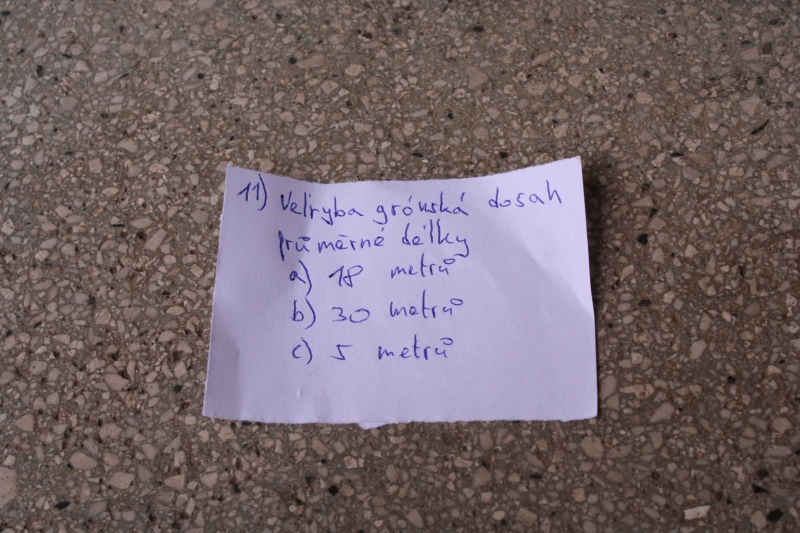 11) Velryba grónská dosah
průměrné délky
a) 18 metrů
b) 30 metrů
c) 5 metrů